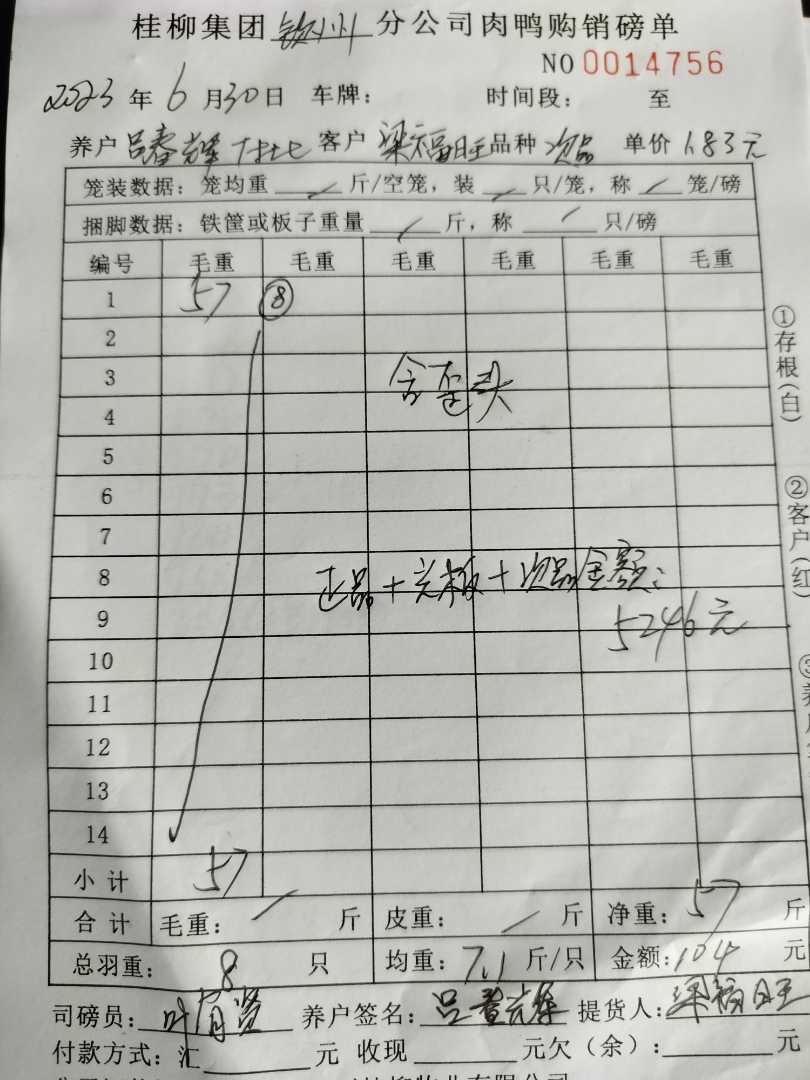 桂柳集团钦州分公司肉鸭购销磅单
NO 0014756
2023年6月30日 车牌: 时间段: 至
养户 吕春辉 客户 梁福旺 品种 次品 单价 1.83元
笼装数据: 笼均重 / 斤/空笼, 装 / 只/笼, 称 / 笼/磅
捆脚数据: 铁筐或板子重量 / 斤, 称 / 只/磅
编号 毛重 毛重 毛重 毛重 毛重 毛重
1 57 ⑧
2
3 含歪头
4
5
6
7
8 正品+光板+次品金额:
9 5246元
10
11
12
13
14
小计 57
合计 毛重: / 斤 皮重: / 斤 净重: 57 斤
总羽重: 8 只 均重: 7.1 斤/只 金额: 104 元
司磅员: 叶 贤 养户签名: 吕春辉 提货人: 梁福旺
付款方式: 汇 元 收现 元欠(余): 元
①存根(白)
②客户(红)
③养